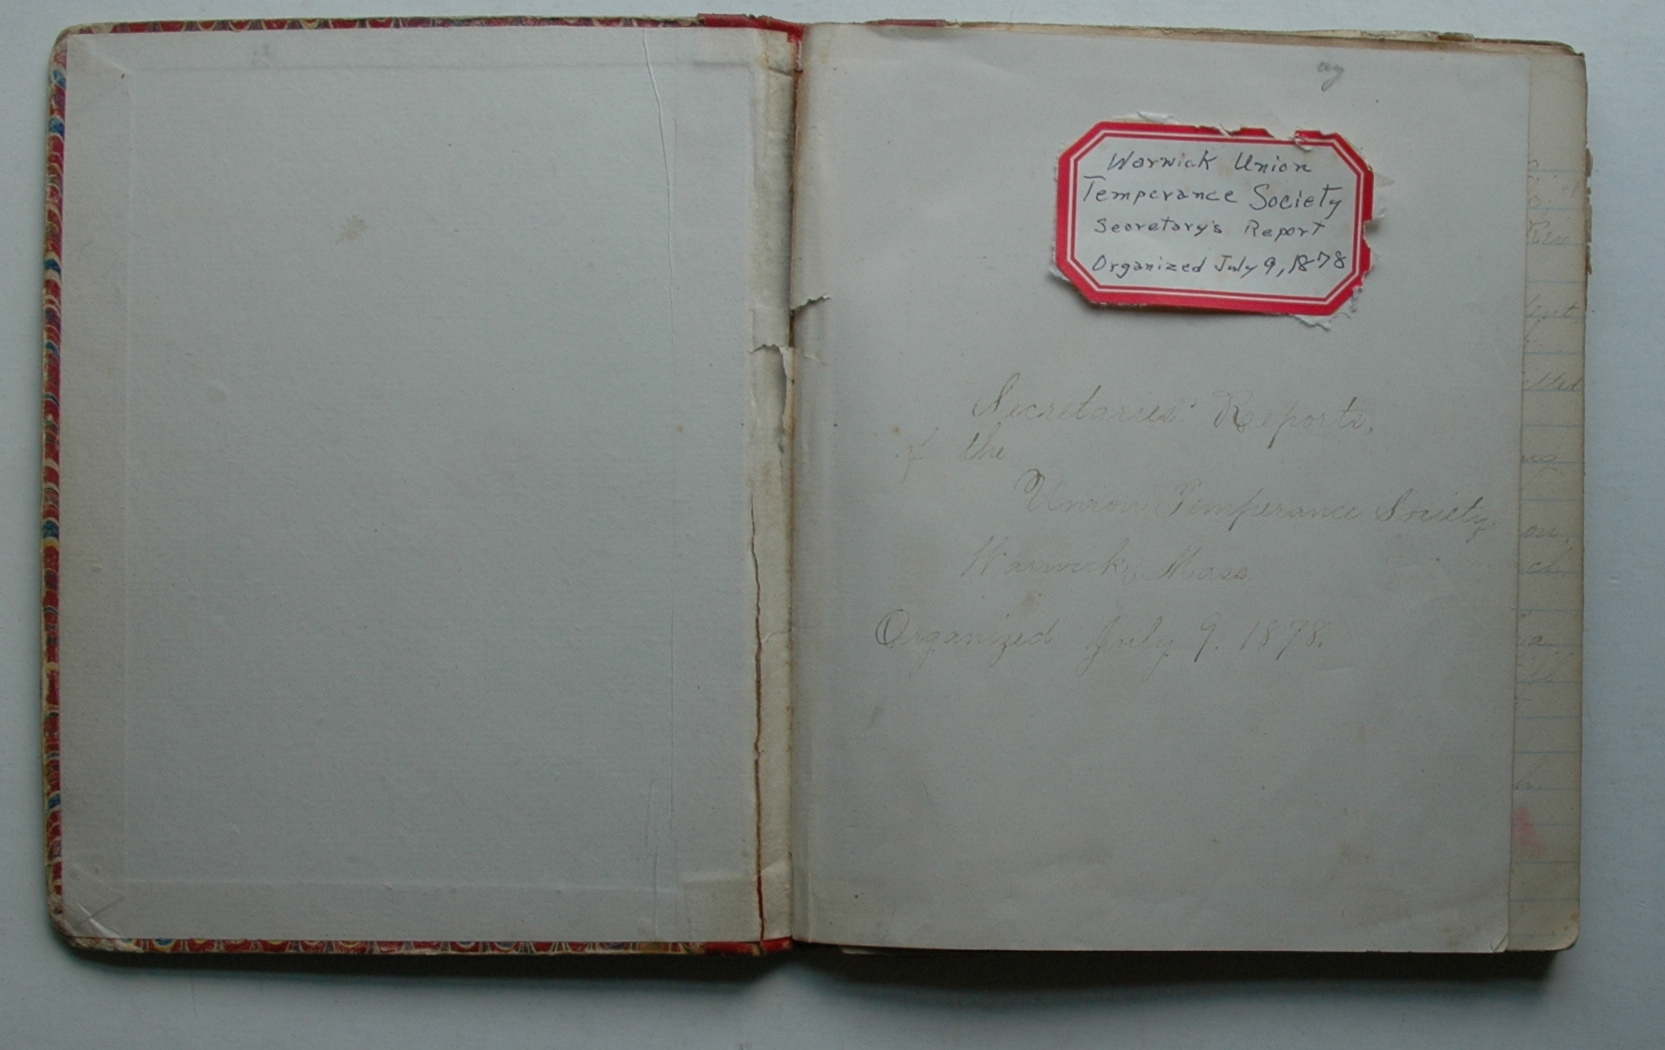 Warwick Union
Temperance Society
Secretary's Report
Organized July 9, 1878
Secretaries' Reports,
of the
Union Temperance Society
Warwick, Mass.
Organized July 9. 1878.